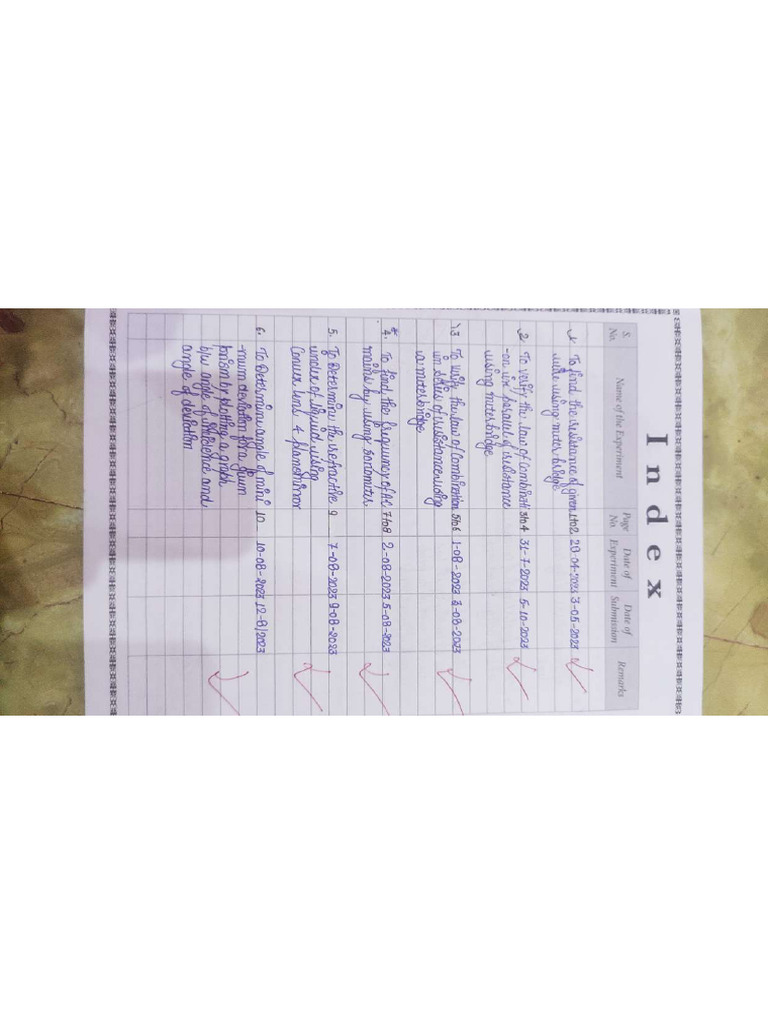 Index
S. No. Name of the Experiment Page No. Date of Experiment Date of Submission Remarks
1. To find the resistance of given 1to2 28-04-2023 3-05-2023
wire using meter bridge
2 To verify the law of Combinati 3to4 31-7-2023 5-10-2023
-on in parallel of resistance
using meter bridge
3 To verify the law of Combination 5to6 1-08-2023 3-08-2023
in series of resistance using
a meter bridge
4. To find the frequency of AC 7to8 2-08-2023 5-08-2023
mains by using sonometer.
5. To Determine the refractive 9 7-08-2023 9-08-2023
index of liquid using
Convex lens & plane mirror
6. To Determine angle of mini 10 10-08-2023 12-8/2023
-mum deviation for a given
prism by plotting a graph
b/w angle of incidence and
angle of deviation